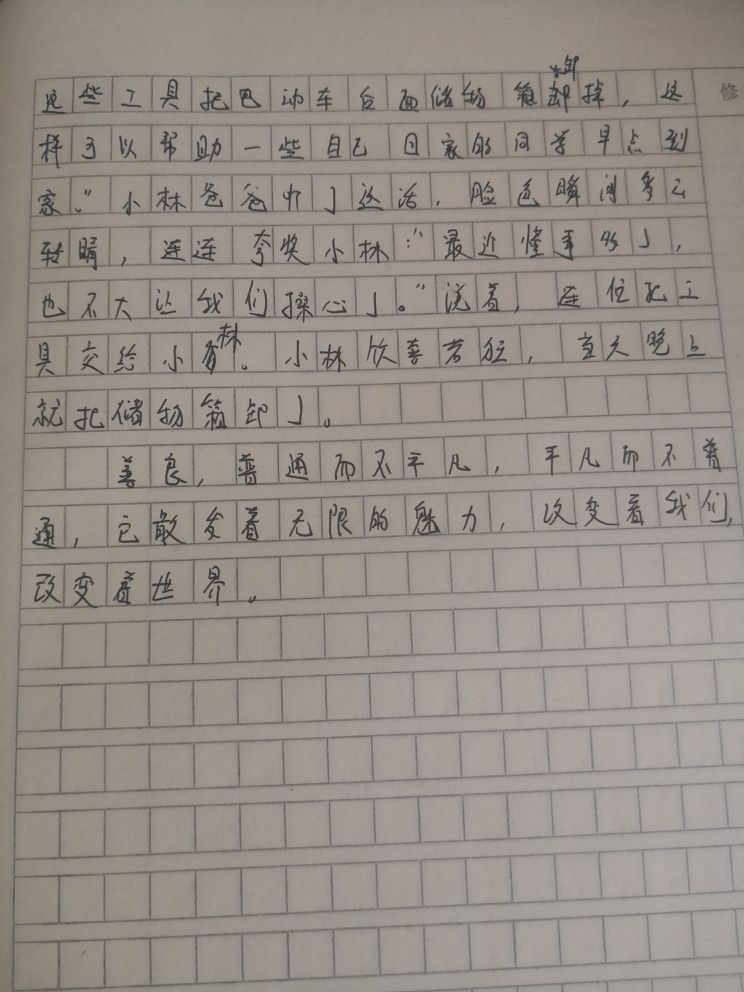 是些工具把电动车后面储物箱卸掉，这
修
样可以帮助一些自己回家的同学早点到
家。”小林爸爸听了这话，脸色瞬间多云
转晴，连连夸奖小林：“最近懂事多了，
也不大让我们操心了。”说着，连忙把工
具交给小林。小林欣喜若狂，当天晚上
就把储物箱卸了。
善良，普通而不平凡，平凡而不普
通，它散发着无限的魅力，改变着我们，
改变着世界。